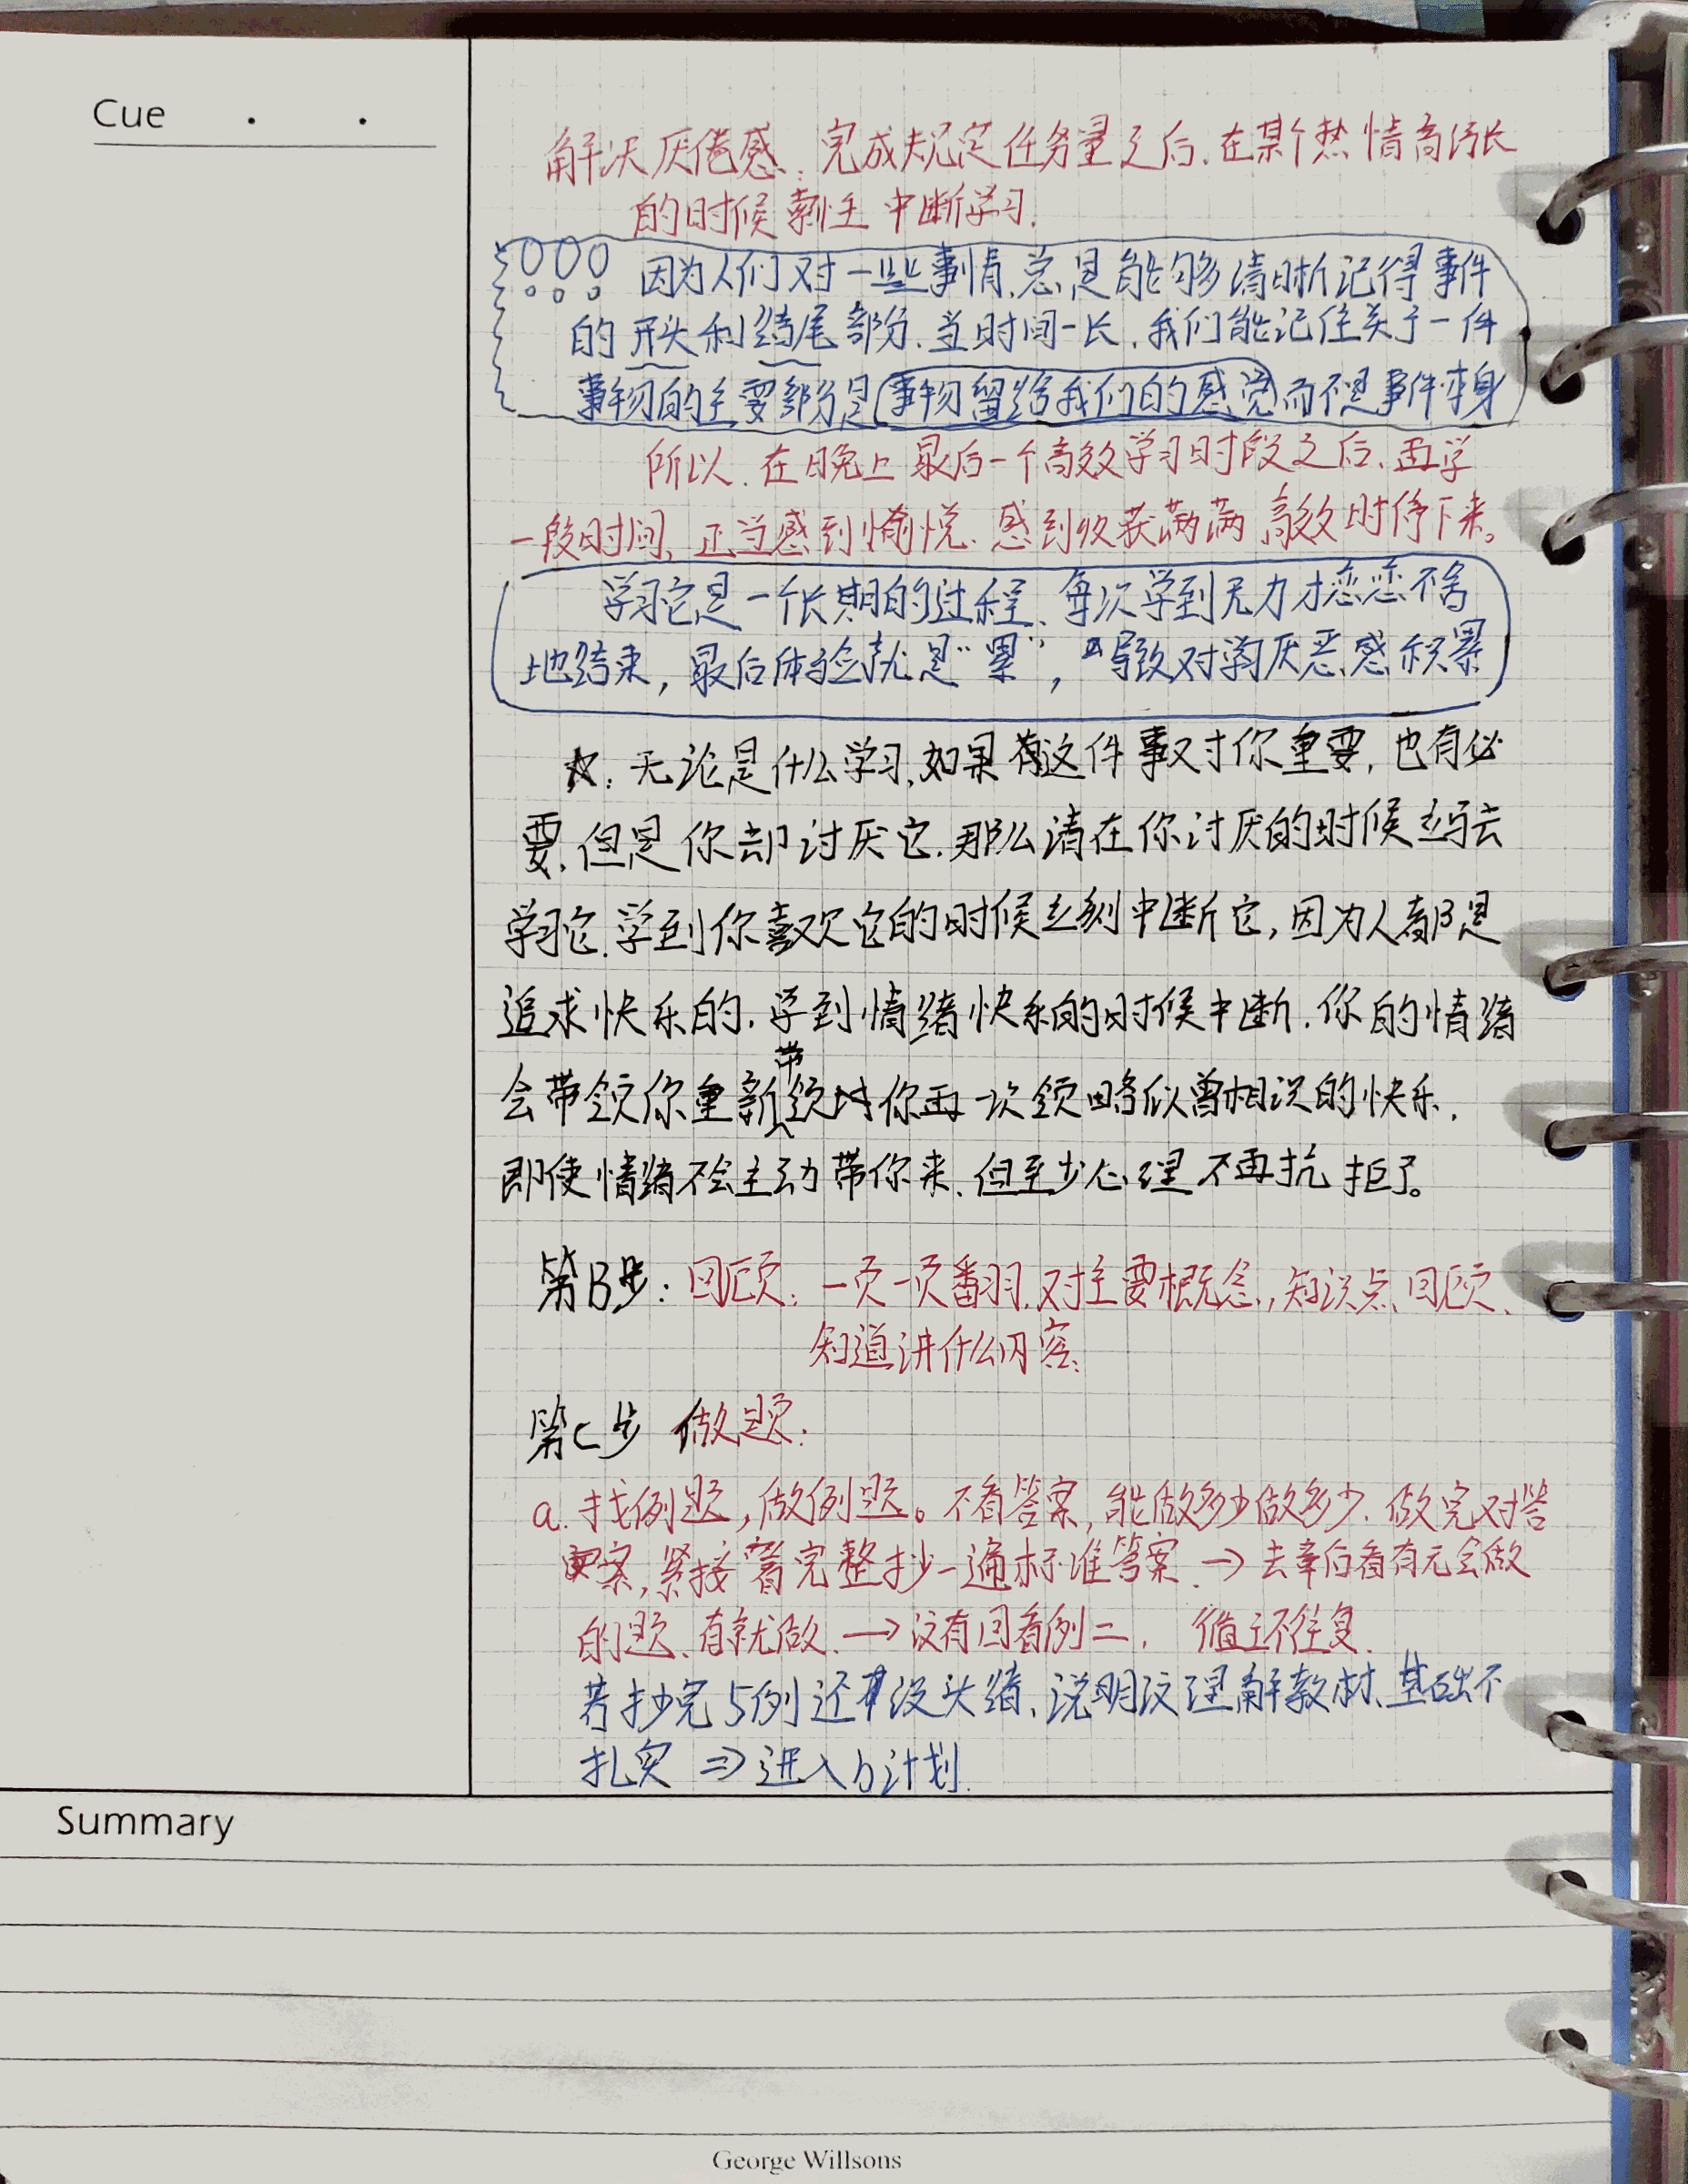 Cue
解决厌倦感：完成规定任务量之后、在某个热情高涨
的时候索性中断学习.
因为人们对一些事情,总是能够清晰记得事件
的开头和结尾部分.当时间一长,我们能记住关于一件
事物的主要部分是事物留给我们的感觉而不是事件本身
所以.在晚上最后一个高效学习时段之后.再学
一段时间,正当感到愉悦.感到收获满满高效时停下来。
学习它是一个长期的过程、每次学到无力才恋恋不舍
地结束，最后体验就是“累”，导致对学习厌恶感积累
☆：无论是什么学习,如果有这件事对你重要,也有必
要.但是你却讨厌它.那么请在你讨厌的时候立马去
学习它.学到你喜欢它的时候立刻中断它,因为人都是
追求快乐的.学到情绪快乐的时候中断.你的情绪
会带领你重新带领你再一次领略似曾相识的快乐.
即使情绪不会主动带你来.但至少心理不再抗拒了。
第B步：回顾：一页一页翻,对主要概念,知识点、回顾、
知道讲什么内容.
第C步 做题：
a.找例题,做例题。不看答案,能做多少做多少.做完对答
案,紧接着完整抄一遍标准答案.→去章后看有无会做
的题、有就做.→没有回看例二. 循环往复.
若抄完5例还没头绪、说明没理解教材、基础不
扎实⇒进入b计划.
Summary
George Willsons